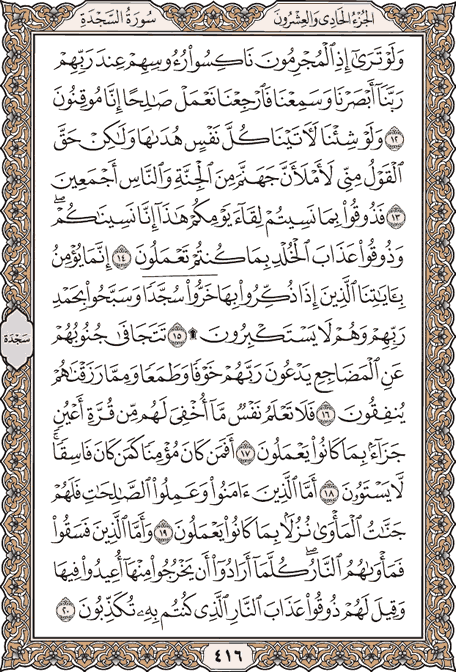 سُورَةُ السَّجْدَةِ الجُزْءُ الحَادِي وَالعِشْرُونَ
وَلَوْ تَرَىٰٓ إِذِ ٱلْمُجْرِمُونَ نَاكِسُوا۟ رُءُوسِهِمْ عِندَ رَبِّهِمْ
رَبَّنَآ أَبْصَرْنَا وَسَمِعْنَا فَٱرْجِعْنَا نَعْمَلْ صَٰلِحًا إِنَّا مُوقِنُونَ
١٢ وَلَوْ شِئْنَا لَءَاتَيْنَا كُلَّ نَفْسٍ هُدَىٰهَا وَلَٰكِنْ حَقَّ
ٱلْقَوْلُ مِنِّى لَأَمْلَأَنَّ جَهَنَّمَ مِنَ ٱلْجِنَّةِ وَٱلنَّاسِ أَجْمَعِينَ
١٣ فَذُوقُوا۟ بِمَا نَسِيتُمْ لِقَآءَ يَوْمِكُمْ هَٰذَآ إِنَّا نَسِينَٰكُمْ ۖ
وَذُوقُوا۟ عَذَابَ ٱلْخُلْدِ بِمَا كُنتُمْ تَعْمَلُونَ ١٤ إِنَّمَا يُؤْمِنُ
بِـَٔايَٰتِنَا ٱلَّذِينَ إِذَا ذُكِّرُوا۟ بِهَا خَرُّوا۟ سُجَّدًا وَسَبَّحُوا۟ بِحَمْدِ
رَبِّهِمْ وَهُمْ لَا يَسْتَكْبِرُونَ ۩ ١٥ تَتَجَافَىٰ جُنُوبُهُمْ
سَجْدَة
عَنِ ٱلْمَضَاجِعِ يَدْعُونَ رَبَّهُمْ خَوْفًا وَطَمَعًا وَمِمَّا رَزَقْنَٰهُمْ
يُنفِقُونَ ١٦ فَلَا تَعْلَمُ نَفْسٌ مَّآ أُخْفِىَ لَهُم مِّن قُرَّةِ أَعْيُنٍ
جَزَآءًۢ بِمَا كَانُوا۟ يَعْمَلُونَ ١٧ أَفَمَن كَانَ مُؤْمِنًا كَمَن كَانَ فَاسِقًا ۚ
لَّا يَسْتَوُۥنَ ١٨ أَمَّا ٱلَّذِينَ ءَامَنُوا۟ وَعَمِلُوا۟ ٱلصَّٰلِحَٰتِ فَلَهُمْ
جَنَّٰتُ ٱلْمَأْوَىٰ نُزُلًۢا بِمَا كَانُوا۟ يَعْمَلُونَ ١٩ وَأَمَّا ٱلَّذِينَ فَسَقُوا۟
فَمَأْوَىٰهُمُ ٱلنَّارُ ۖ كُلَّمَآ أَرَادُوٓا۟ أَن يَخْرُجُوا۟ مِنْهَآ أُعِيدُوا۟ فِيهَا
وَقِيلَ لَهُمْ ذُوقُوا۟ عَذَابَ ٱلنَّارِ ٱلَّذِى كُنتُم بِهِۦ تُكَذِّبُونَ ٢٠
٤١٦